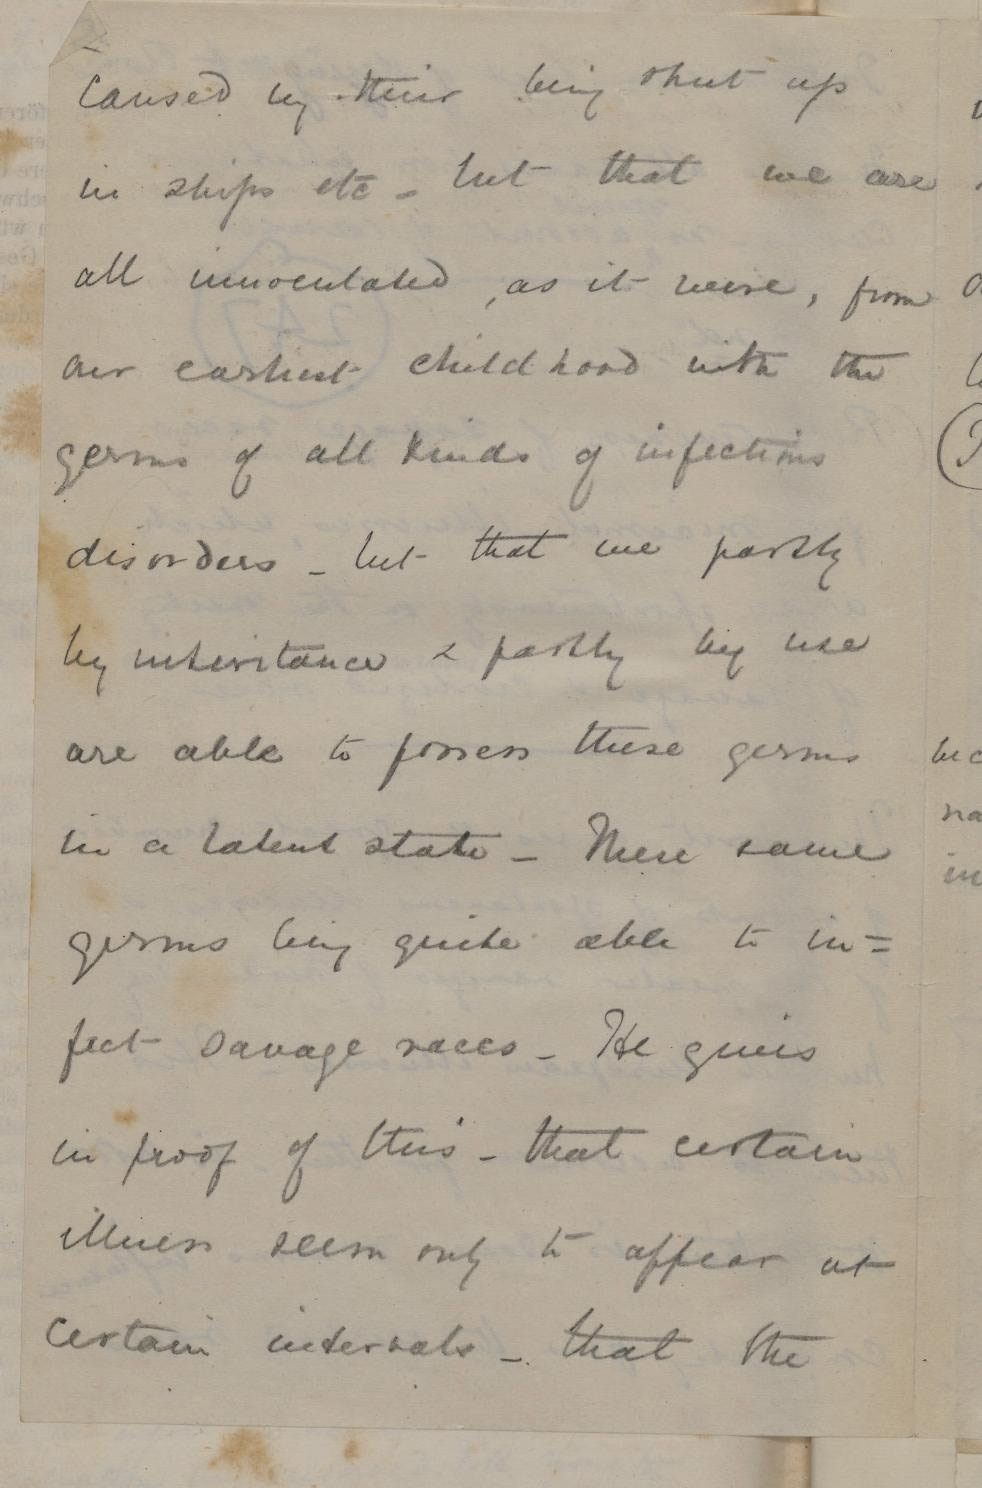 caused by their being shut up
in ships etc - but that we are
all innoculated, as it were, from
our earliest childhood with the
germs of all kinds of infectious
disorders - but that we partly
by inheritance & partly by use
are able to possess these germs
in a latent state - These same
germs being quite able to in=
fect savage races - He gives
in proof of this - that certain
illness seem only to appear at
certain intervals - that the